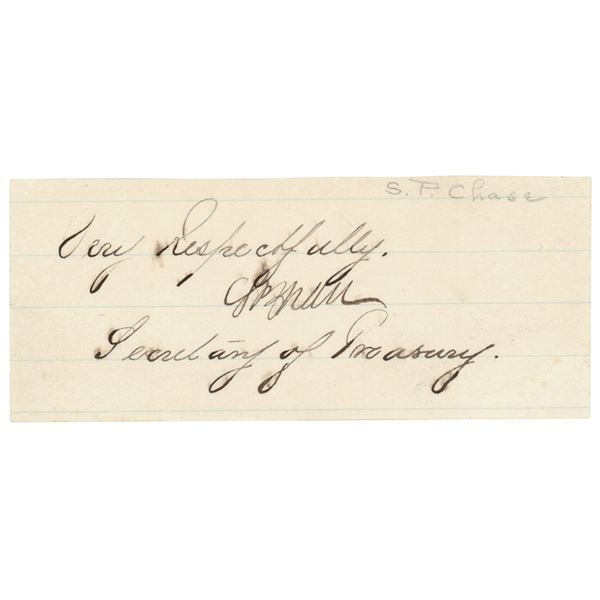 S. P. Chase
Very Respectfully.
SPChase
Secretary of Treasury.